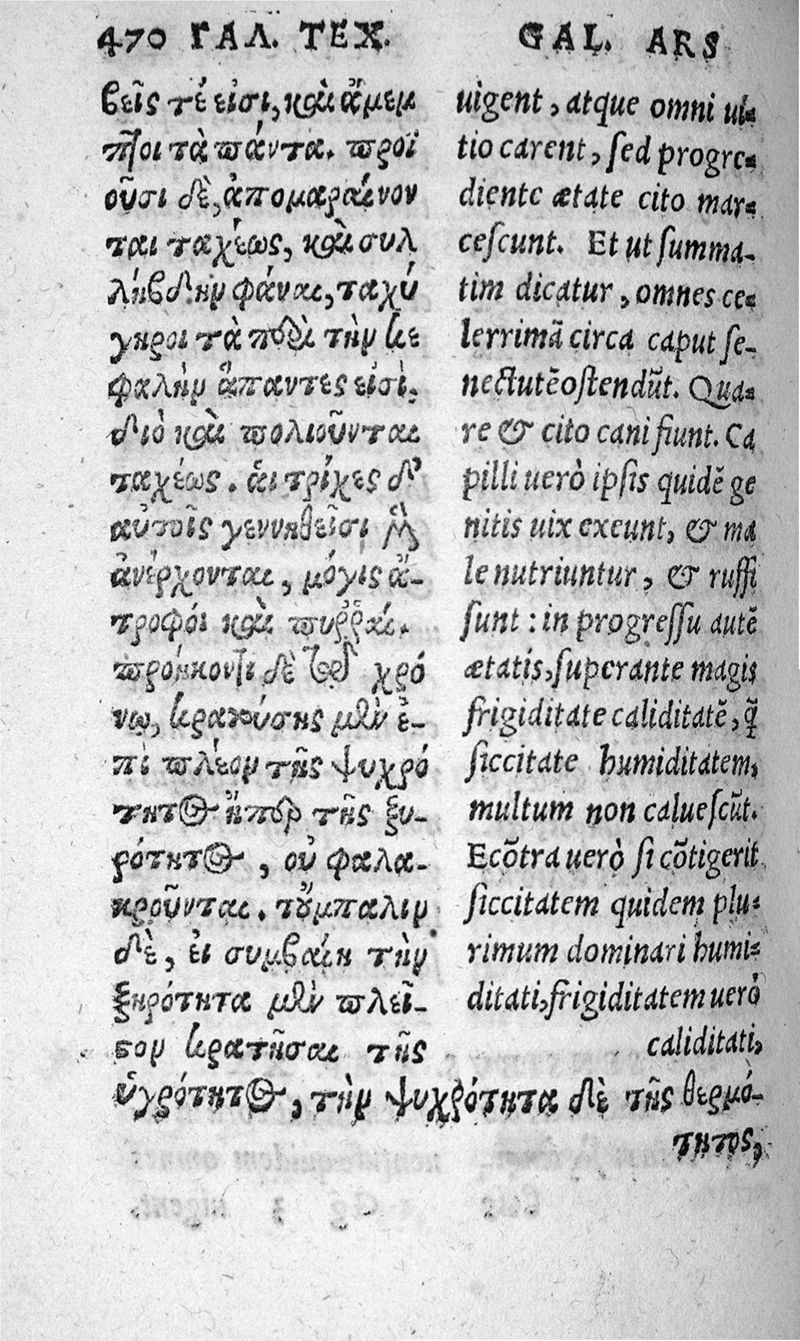 470 ΓΑΛ. ΤΕΧ.
βεῖς τέ εἰσι, καὶ ἄμεμ
πτοι τὰ πάντα. προϊ
οῦσι δὲ, ἀπομαραίνον
ται ταχέως, καὶ συλ
λήβδην φάναι, ταχύ
γηροι τὰ περὶ τὴν κε
φαλὴν ἅπαντες εἰσί.
διὸ καὶ πολιοῦνται
ταχέως. αἱ τρίχες δ'
αὐτοῖς γεννηθεῖσι μὲν
ἀνέρχονται, μόγις ἄ-
τροφοι καὶ πυῤῥαί.
προήκοντι δὲ τῷ χρό
νῳ, κρατούσης μὲν ἐ-
πὶ πλέον τῆς ψυχρό
τητος ἤπερ τῆς ξη-
ρότητος, οὐ φαλα-
κροῦνται. τοὔμπαλιν
δὲ, εἰ συμβαίη τὴν
ξηρότητα μὲν πλεῖ-
στον κρατῆσαι τῆς
ὑγρότητος, τὴν ψυχρότητα δὲ τῆς θερμό-
τητος,
GAL. ARS
uigent, atque omni ui-
tio carent, sed progre-
diente ætate cito mar-
cescunt. Et ut summa-
tim dicatur, omnes ce-
lerrimã circa caput se-
nectutẽ ostendũt. Qua-
re & cito cani fiunt. Ca
pilli uerò ipsis quidẽ ge
nitis uix exeunt, & ma
le nutriuntur, & ruffi
sunt: in progressu autẽ
ætatis, superante magis
frigiditate caliditatẽ, q̃
siccitate humiditatem,
multum non caluescũt.
Ecõtra uerò si cõtigerit
siccitatem quidem plu-
rimum dominari humi-
ditati, frigiditatem uerò
caliditati,